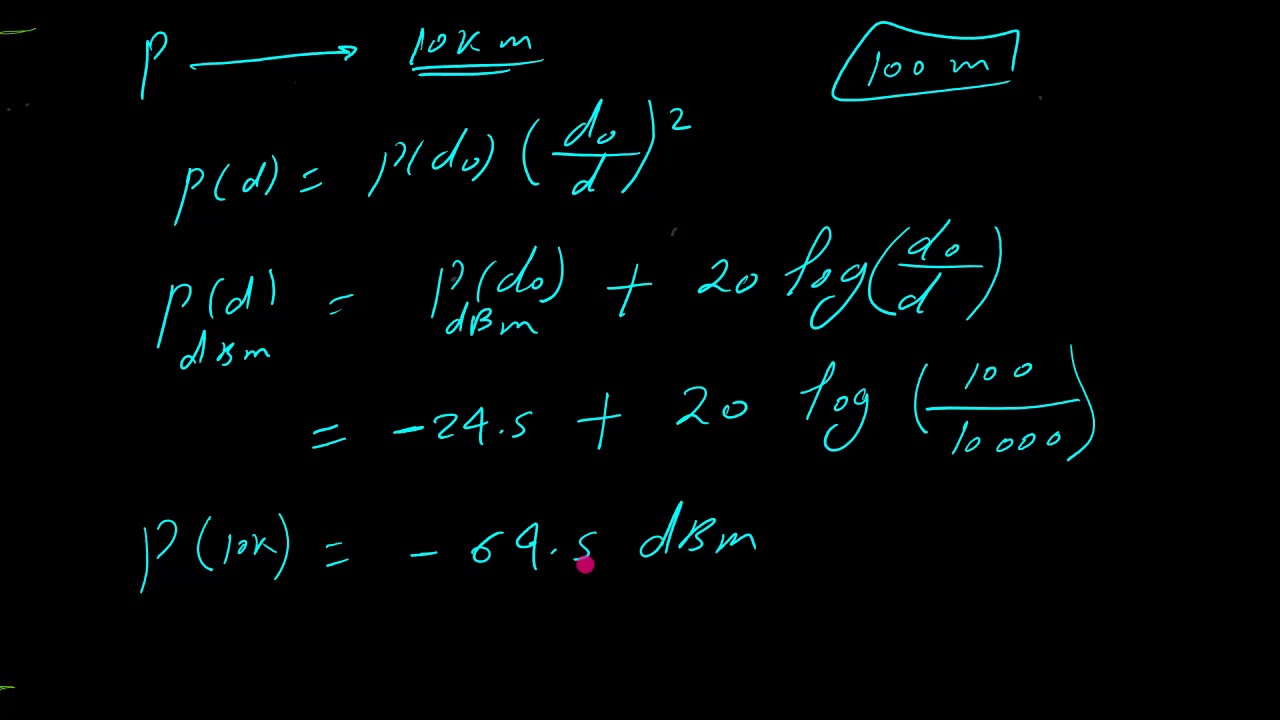 P → 10km 100 m
P(d) = P(d₀) (d₀/d)²
P(d) dBm = P(d₀) dBm + 20 log(d₀/d)
= -24.5 + 20 log (100/10000)
P(10k) = -64.5 dBm